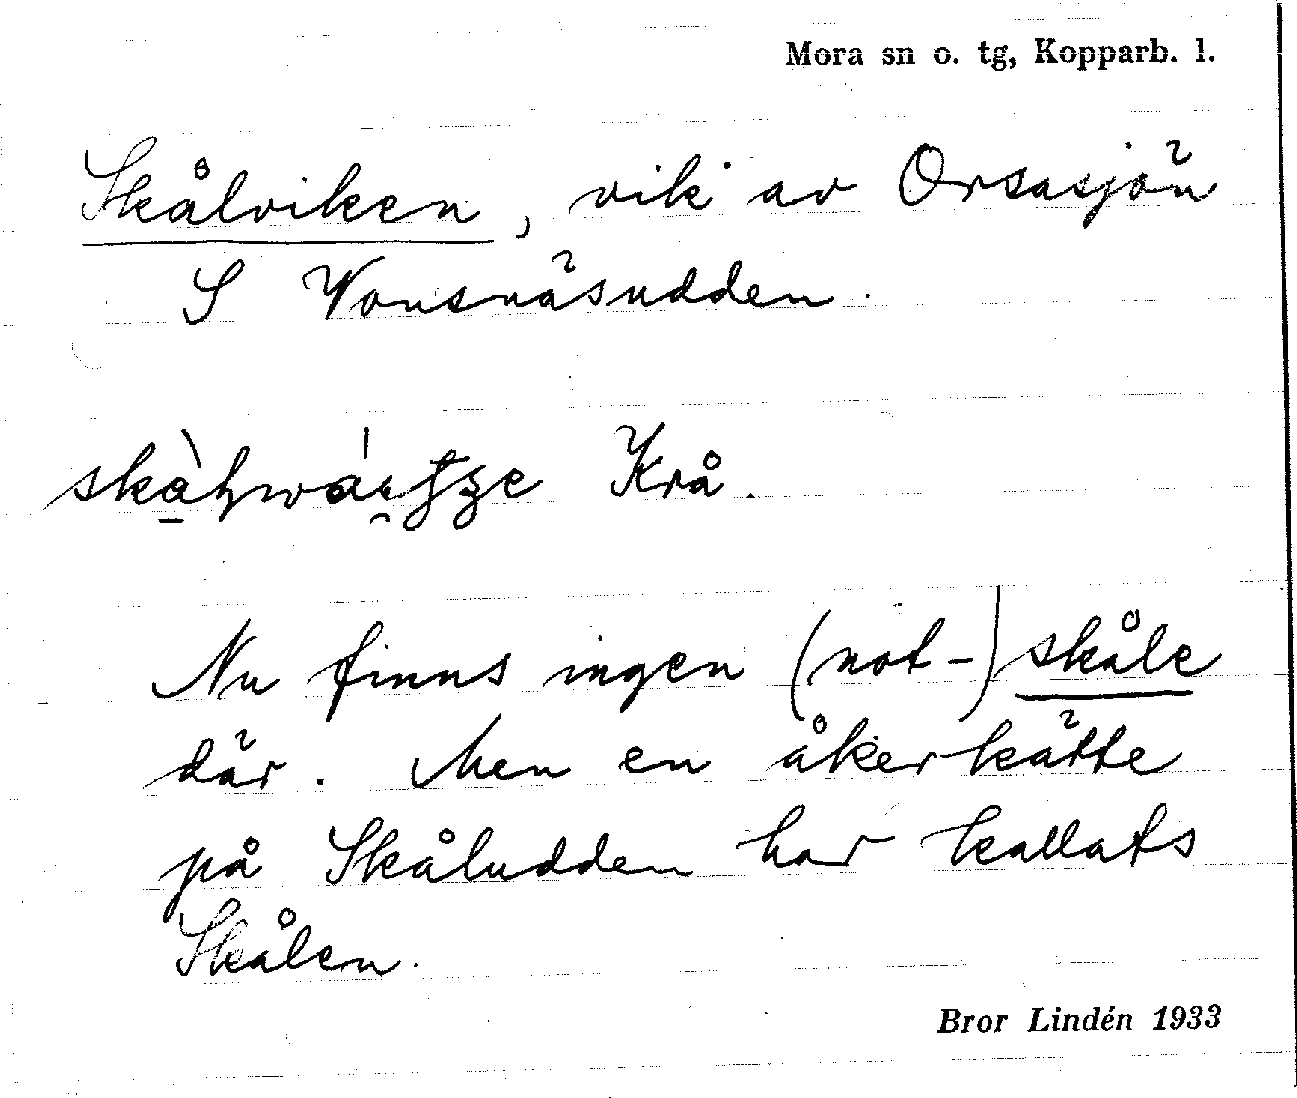 Mora sn o. tg, Kopparb. l.
Skålviken, vik av Orsasjön
S Vonsnäsudden.
Krå.
Nu finns ingen (not-) skåle
där. Men en åkerkätte
på Skåludden har kallats
Skålen.
Bror Lindén 1933